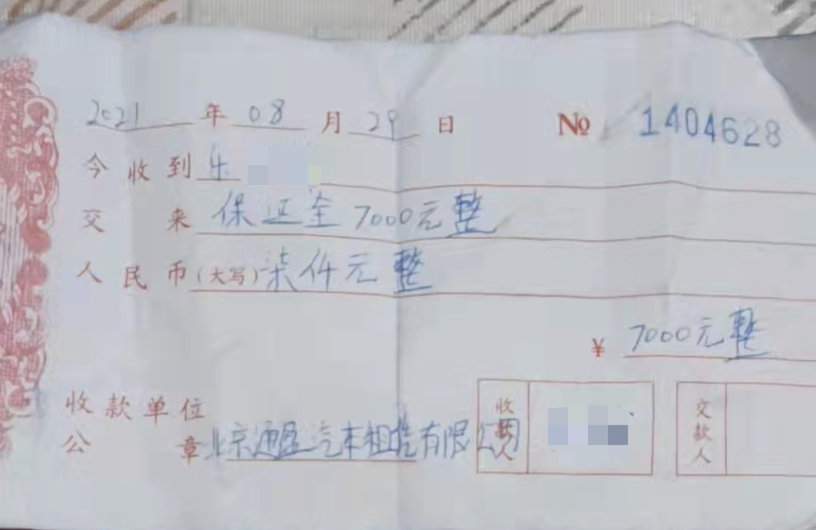 2021年08月29日 № 1404628
今收到乐
交来保证金7000元整
人民币(大写)柒仟元整
¥ 7000元整
收款单位
公章北京通盈汽车租赁有限公司
收款人
交款人